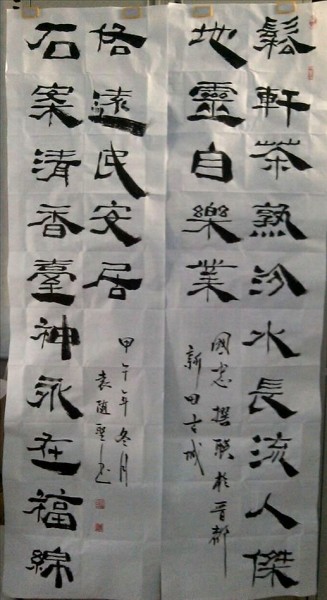 鬆軒茶熟汾水長流人傑
地靈自樂業
國忠撰聯於晋都
新田古城
石案清香臺神永在福綿
格遠民安居
甲午年冬月
袁隨